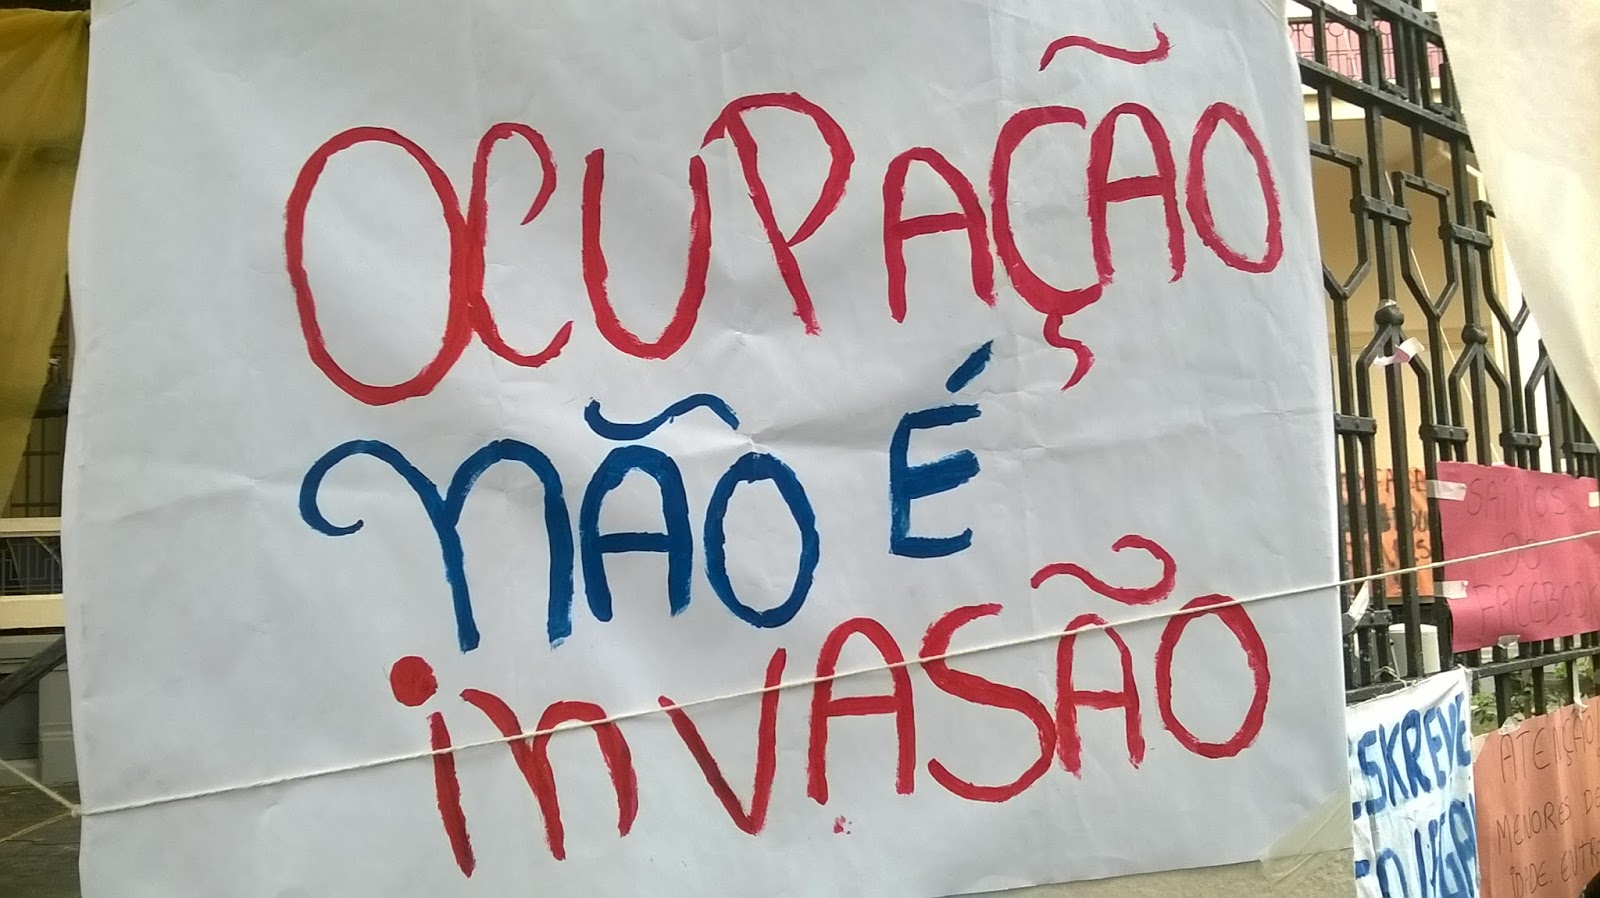 OCUPAÇÃO
NÃO É
inVASÃO
SAÍMOS
DO
FACEBOOK
ATENÇÃO
MENORES DE
IDADE